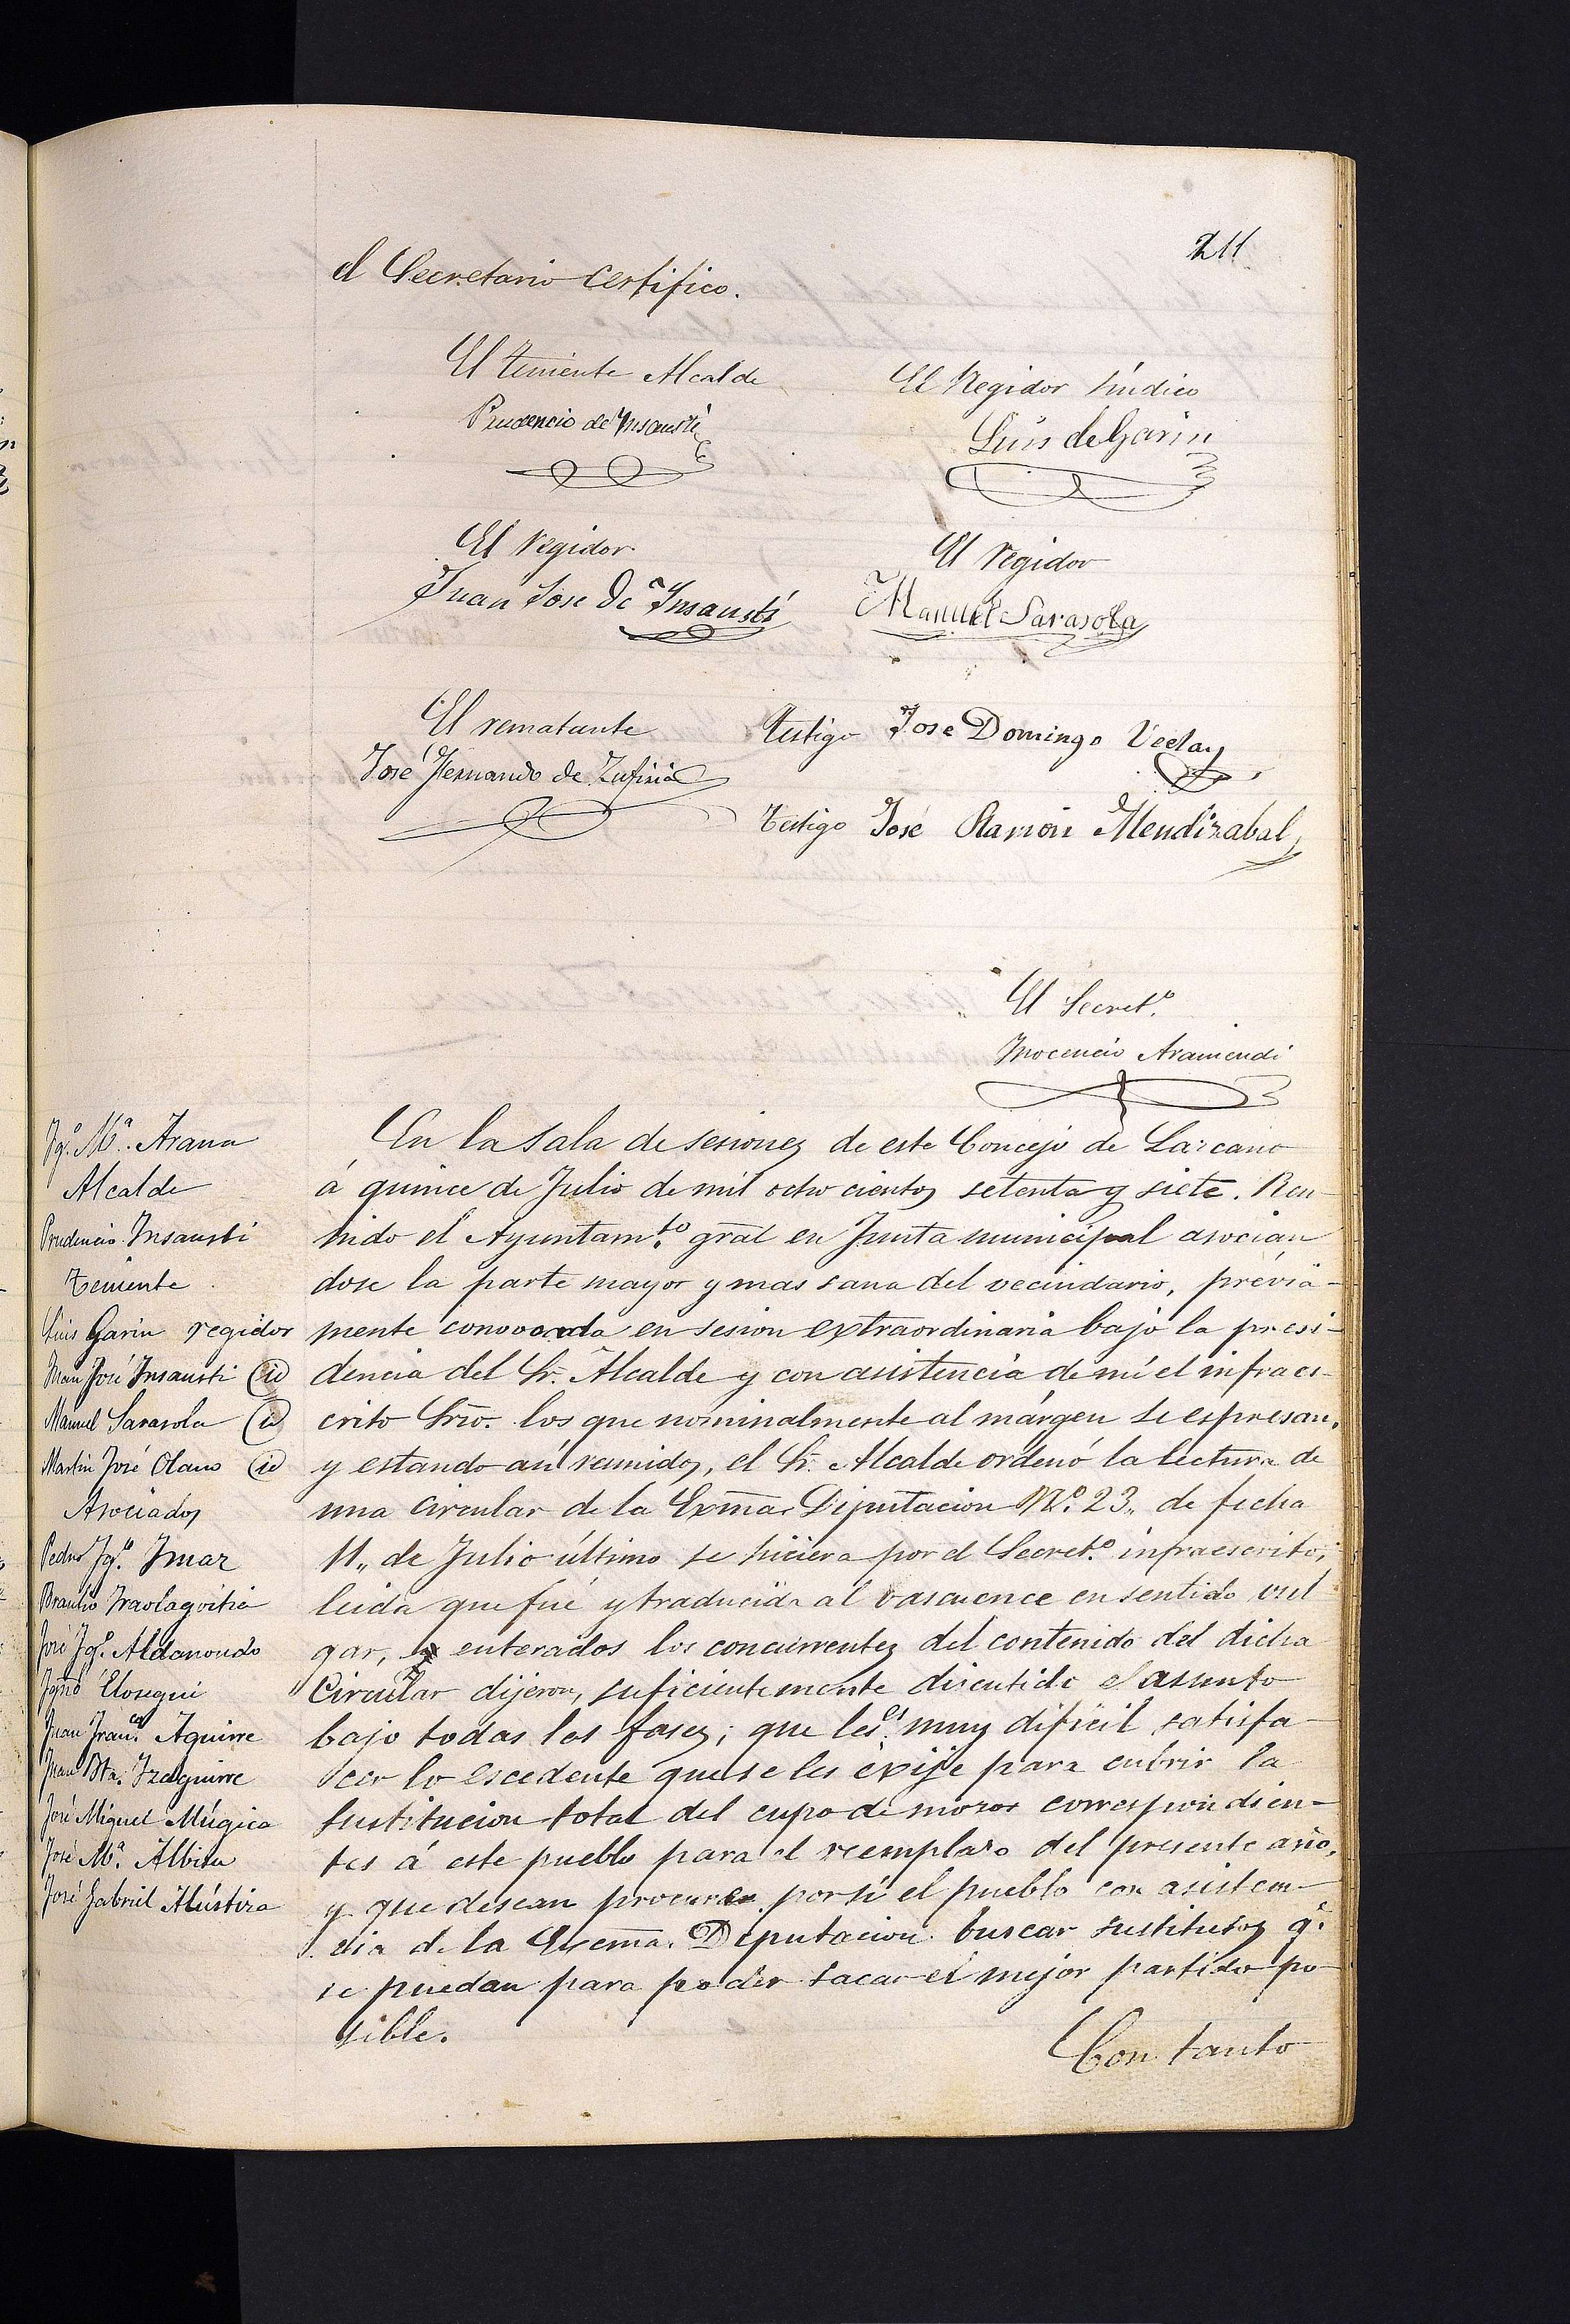 211
el Secretario certifico.
El teniente Alcalde
Prudencio de Insausti
El Regidor Síndico
Luis de Garin
El Regidor
Juan Jose de Insausti
El Regidor
Manuel Sarasola
El rematante
José Fernando de Zufiria
Testigo Jose Domingo
Testigo José Ramon Mendizabal
El Secret.º
Inocencio Aramendi
Ygº. Mª. Arana
Alcalde
Prudencio Insausti
Teniente
Luis Garin regidor
Juan José Insausti id
Manuel Sarasola id
Martin José Olano id
Asociados
Pedro Ygº. Imaz
Braulio Iraolagoitia
José Ygº. Aldanondo
Ygnº Elosegui
Juan Franco. Aguirre
Juan Bta. Izaguirre
José Miguel Múgica
José Mª. Albisu
José Gabriel Alústiza
En la sala de sesiones de este Concejo de Lazcano
á quince de Julio de mil ocho cientos setenta y siete. Reu-
nido el Ayuntamto. gral en Junta municipal asocian
dose la parte mayor y mas sana del vecindario, prévia-
mente convocada en sesion extraordinaria bajo la presi-
dencia del Sr. Alcalde y con asistencia de mí el infraes-
crito Srio. los que nominalmente al márgen se espresan,
y estando así reunidos, el Sr. Alcalde ordenó la lectura de
una circular de la Exma. Diputacion Nº. 23,, de fecha
11,, de Julio último se hiciera por el Secret.º infraescrito;
leida que fué y traducida al vascuence en sentido vul
gar, y enterados los concurrentes del contenido del dicha
Circular dijeron, suficientemente discutido el asunto
bajo todas las fases; que les es muy dificil satisfa-
cer lo escedente que se les exije para cubrir la
sustitucion total del cupo de mozos correspondien-
tes á este pueblo para el reemplazo del presente año,
y que desean procurar por sí el pueblo con asisten-
cia de la Excma. Diputacion buscar sustitutos q.e
se puedan para poder sacar el mejor partido po-
sible.
Con tanto